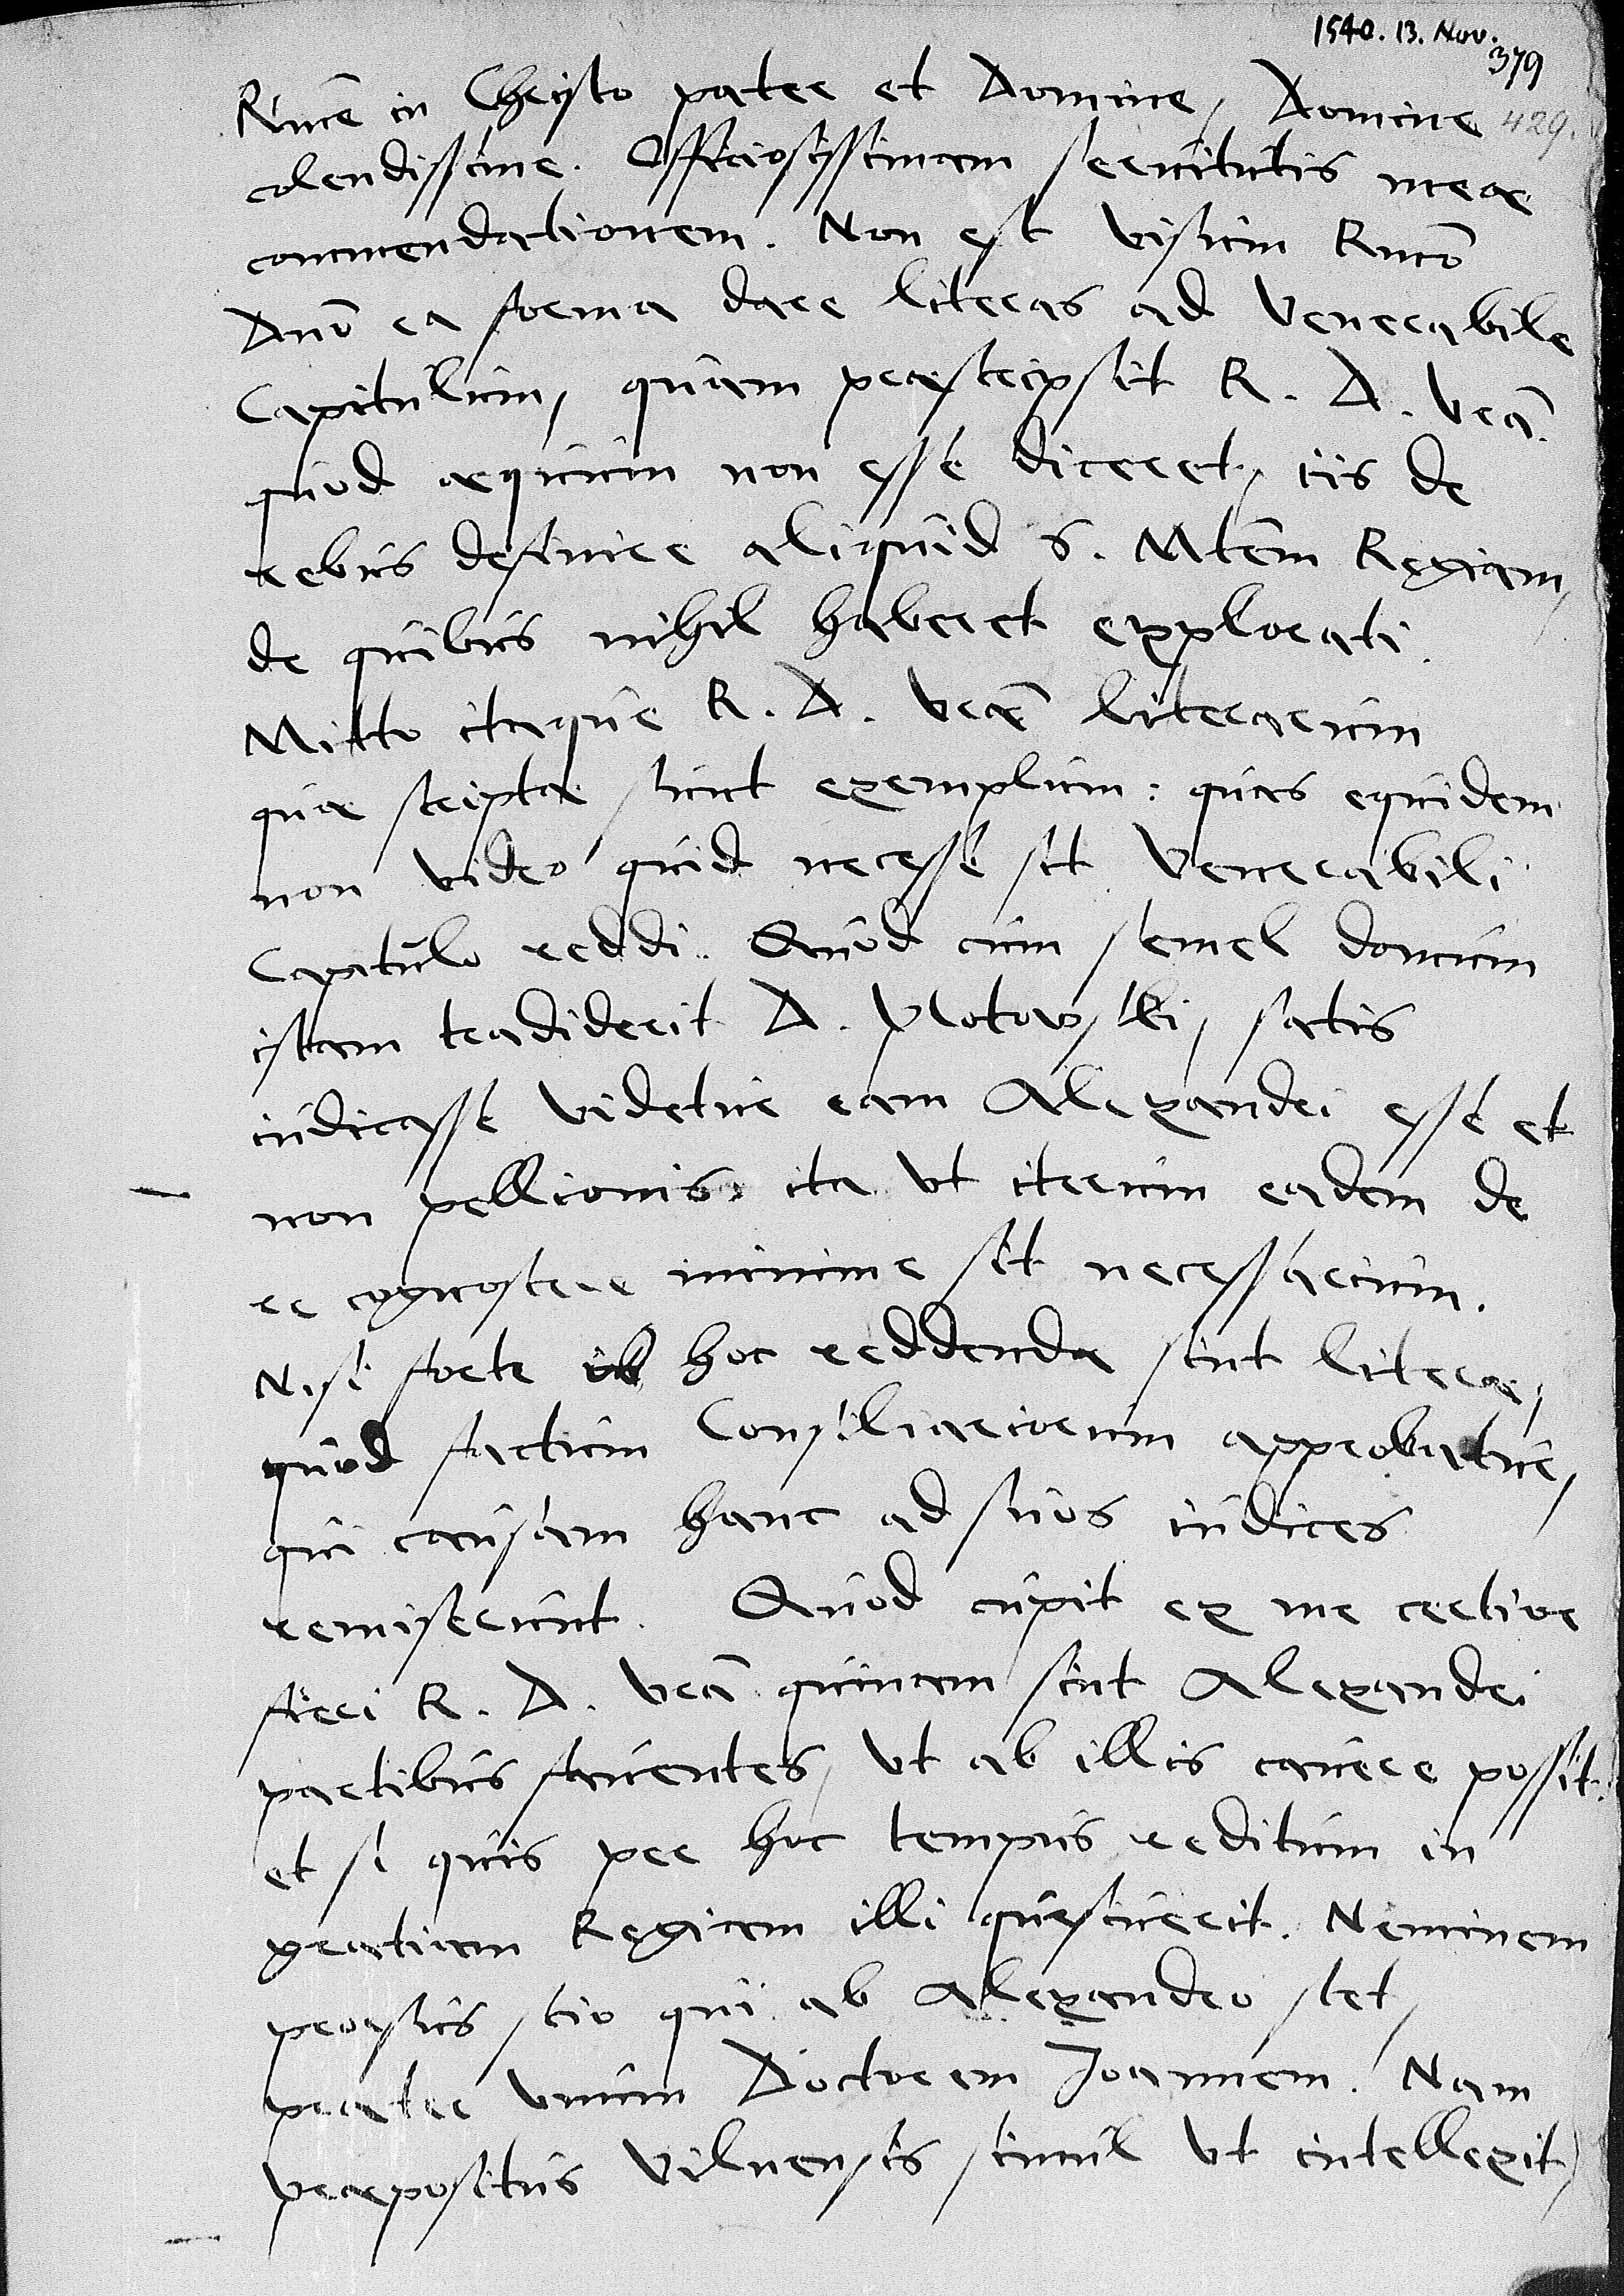 1540. 13. Nov.
379
429.
Rme in Christo pater et Domine, Domine
colendissime. Officiosissimam servitutis meae
commendationem. Non est visum Rmo
Dno ea forma dare literas ad Venerabile
Capitulum, quam praescripsit R. D. vra.
quod aequum non esse diceret, iis de
rebus definire aliquid S. Mtem Regiam,
de quibus nihil haberet explorati.
Mitto itaque R. D. vrae literarum
quae scriptae sunt exemplum: quas equidem
non video quid necesse sit Venerabili
Capitulo reddi. Quod cum semel domum
istam tradiderit D. Plotowski, satis
iudicasse videtur eam Alexandri esse et
non pellionis, ita ut iterum eadem de
re cognoscere minime sit necessarium.
Nisi forte ob hoc reddendae sint literae,
quod factum Consiliariorum approbatur,
qui causam hanc ad suos iudices
remiserunt. Quod cupit ex me certior
fieri R. D. vra quinam sint Alexandri
partibus faventes, ut ab illis cavere possit:
et si quis per hoc tempus reditum in
gratiam Regiam illi quaesiverit. Neminem
prorsus scio qui ab Alexandro stet,
praeter unum Doctorem Joannem. Nam
praepositus Vilnensis simul ut intellexit,